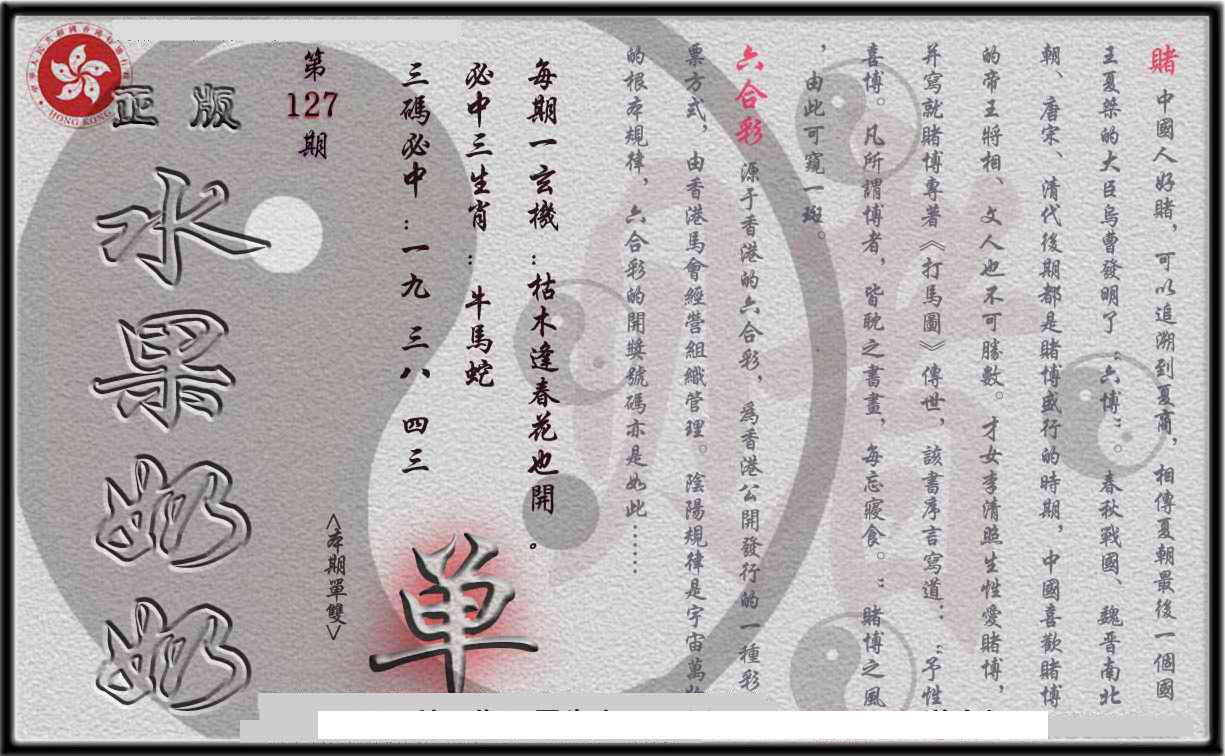 賭 中國人好賭，可以追溯到夏商，相傳夏朝最後一個國
王夏桀的大臣烏曹發明了“六博”。春秋戰國、魏晋南北
朝、唐宋、清代後期都是賭博盛行的時期，中國喜歡賭博
的帝王將相、文人也不可勝數。才女李清照生性愛賭博，
并寫就賭博專著《打馬圖》傳世，該書序言寫道：“予性
喜博。凡所謂博者，皆耽之書畫，每忘寢食。”賭博之風
，由此可窺一斑。
六合彩 源于香港的六合彩，爲香港公開發行的一種彩
票方式，由香港馬會經營組織管理。陰陽規律是宇宙萬
的根本規律，六合彩的開獎號碼亦是如此……
每期一玄機：枯木逢春花也開。
必中三生肖：牛馬蛇
三碼必中：一九 三八 四三
<本期單雙>
单
第127期
正版
水果奶奶
HONG KONG